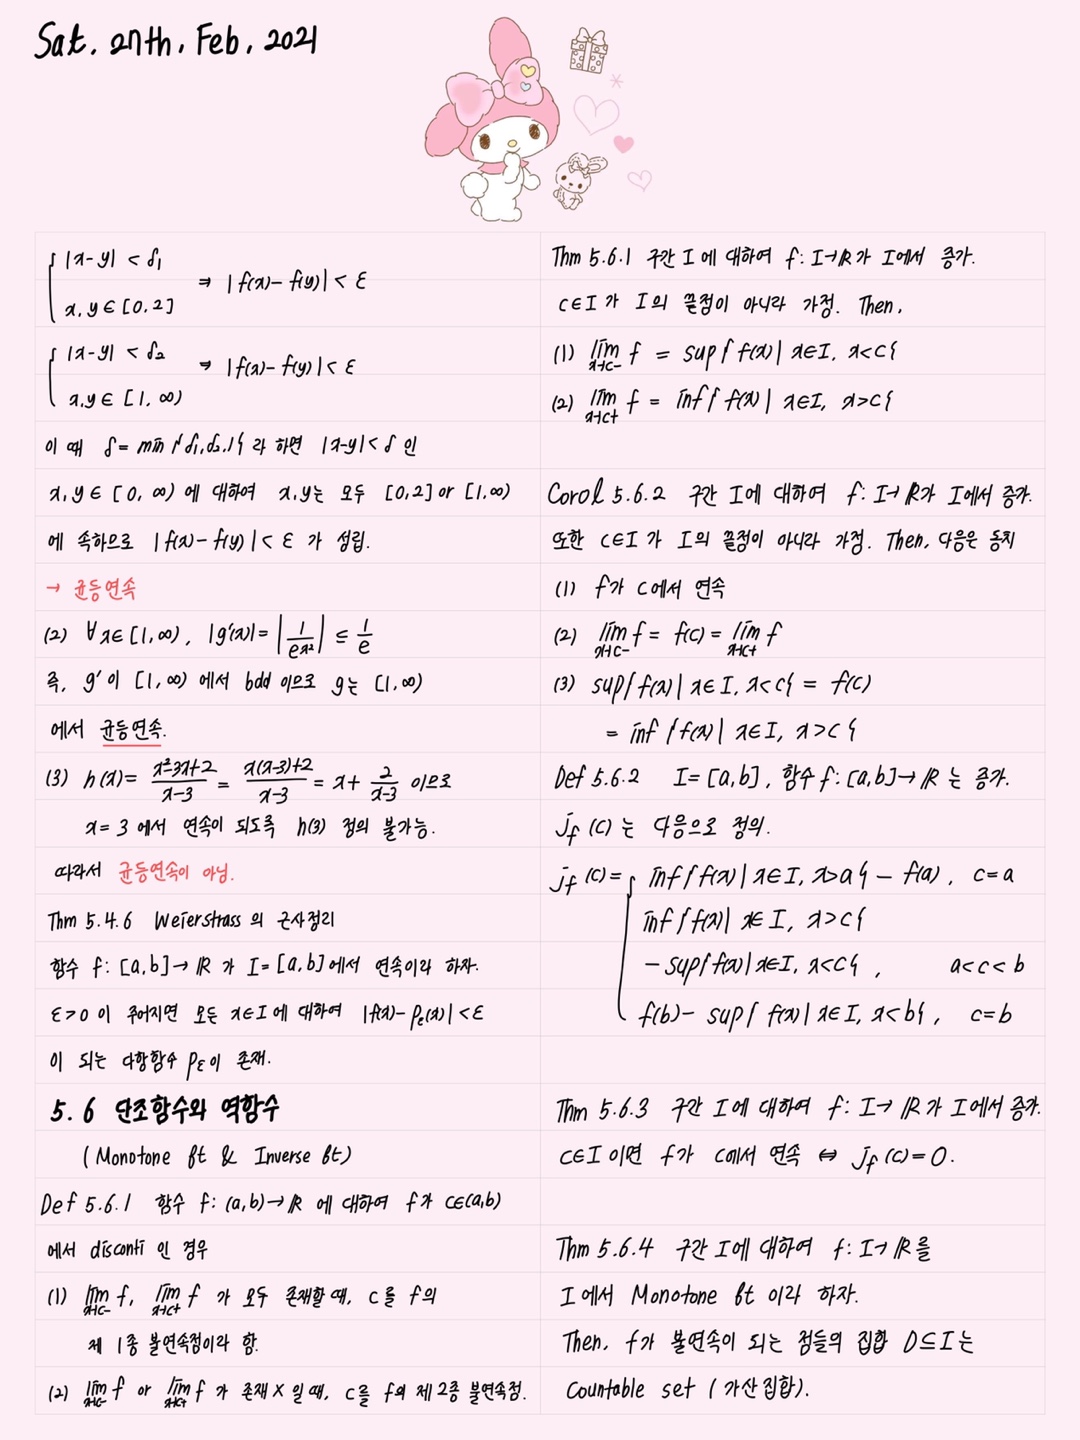 Sat, 27th, Feb, 2021
{ |x-y| < δ₁
x, y ∈ [0, 2] ⇒ |f(x)-f(y)| < ε
{ |x-y| < δ₂
x, y ∈ [1, ∞) ⇒ |f(x)-f(y)| < ε
이 때 δ = min{δ₁, δ₂, 1} 라 하면 |x-y| < δ 인
x, y ∈ [0, ∞) 에 대하여 x, y는 모두 [0,2] or [1,∞)
에 속하므로 |f(x)-f(y)| < ε 가 성립.
→ 균등연속
(2) ∀x∈[1,∞), |g'(x)| = |1/e^{x²}| ≤ 1/e
즉, g'이 [1,∞) 에서 bdd 이므로 g는 [1,∞)
에서 균등연속.
(3) h(x) = (x²-3x+2)/(x-3) = (x(x-3)+2)/(x-3) = x + 2/(x-3) 이므로
x = 3 에서 연속이 되도록 h(3) 정의 불가능.
따라서 균등연속이 아님.
Thm 5.4.6 Weierstrass 의 근사정리
함수 f: [a,b]→ℝ 가 I=[a,b]에서 연속이라 하자.
ε>0 이 주어지면 모든 x∈I에 대하여 |f(x)-p_ε(x)|<ε
이 되는 다항함수 p_ε이 존재.
5.6 단조함수와 역함수
(Monotone ft & Inverse ft)
Def 5.6.1 함수 f: (a,b)→ℝ 에 대하여 f가 c∈(a,b)
에서 disconti 인 경우
(1) lim_{x→c-} f, lim_{x→c+} f 가 모두 존재할 때, c를 f의
제 1종 불연속점이라 함.
(2) lim_{x→c-} f or lim_{x→c+} f 가 존재 X 일 때, c를 f의 제 2종 불연속점.
Thm 5.6.1 구간 I 에 대하여 f: I→ℝ가 I에서 증가.
c∈I 가 I의 끝점이 아니라 가정. Then,
(1) lim_{x→c-} f = sup{f(x)| x∈I, x<c}
(2) lim_{x→c+} f = inf{f(x)| x∈I, x>c}
Corol 5.6.2 구간 I에 대하여 f: I→ℝ가 I에서 증가.
또한 c∈I 가 I의 끝점이 아니라 가정. Then, 다음은 동치
(1) f가 c에서 연속
(2) lim_{x→c-} f = f(c) = lim_{x→c+} f
(3) sup{f(x)| x∈I, x<c} = f(c)
= inf{f(x)| x∈I, x>c}
Def 5.6.2 I=[a,b], 함수 f: [a,b]→ℝ 는 증가.
j_f(c) 는 다음으로 정의.
j_f(c) = { inf{f(x)| x∈I, x>a} - f(a), c=a
inf{f(x)| x∈I, x>c}
- sup{f(x)| x∈I, x<c}, a<c<b
f(b) - sup{f(x)| x∈I, x<b}, c=b
Thm 5.6.3 구간 I에 대하여 f: I→ℝ가 I에서 증가.
c∈I 이면 f가 c에서 연속 ⇔ j_f(c)=0.
Thm 5.6.4 구간 I에 대하여 f: I→ℝ을
I 에서 Monotone ft 이라 하자.
Then, f가 불연속이 되는 점들의 집합 D⊆I는
Countable set (가산집합).